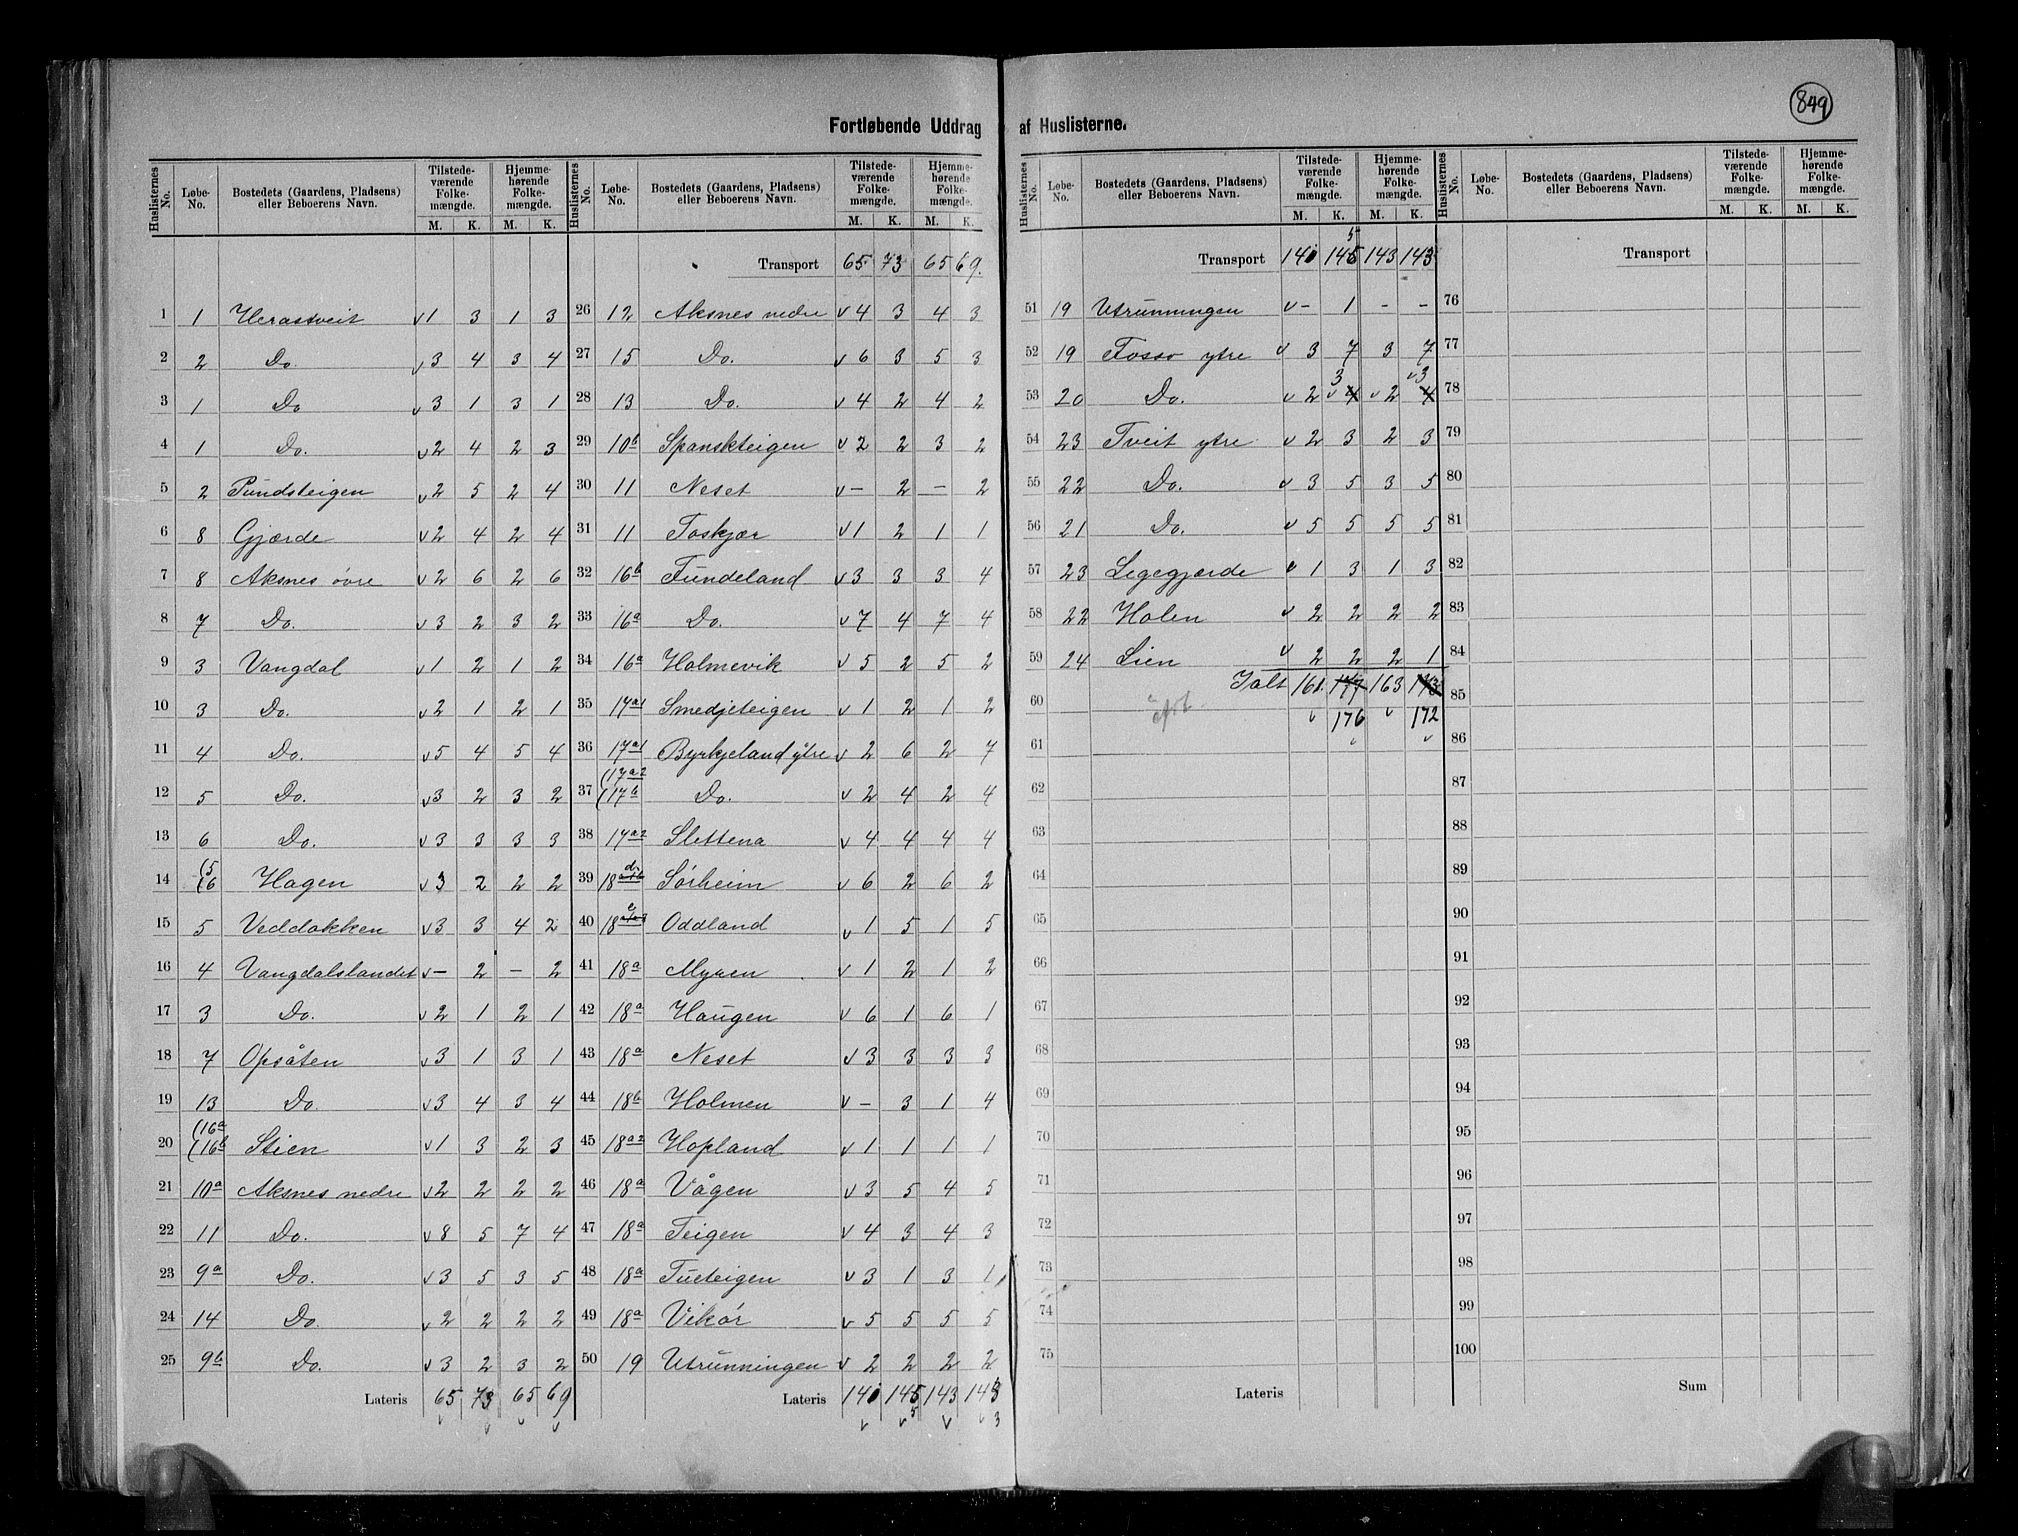 849
Fortløbende Uddrag af Huslisterne.
Huslisternes No. | Løbe-No. | Bostedets (Gaardens, Pladsens) eller Beboerens Navn. | Tilstedeværende Folkemængde. M. K. | Hjemmehørende Folkemængde. M. K.
1 1 Herastveit v1 3 1 3
2 2 Do. v3 4 3 4
3 1 Do v3 1 3 1
4 1 Do. v2 4 2 3
5 2 Pundsteigen v2 5 2 4
6 8 Gjærde v2 4 2 4
7 8 Aksnes øvre v2 6 2 6
8 7 Do. v3 2 3 2
9 3 Vangdal v1 2 1 2
10 3 Do. v2 1 2 1
11 4 Do. v5 4 5 4
12 5 Do. v3 2 3 2
13 6 Do. v3 3 3 3
14 (5 (6 Hagen v3 2 2 2
15 5 Veddakken v3 3 4 2
16 4 Vangdalslandet v– 2 – 2
17 3 Do. v2 1 2 1
18 7 Opsåten v3 1 3 1
19 13 Do. v3 4 3 4
20 (16a (16b Stien v1 3 2 3
21 10a Aksnes nedre v2 2 2 2
22 11 Do. v8 5 7 4
23 9a Do. v3 5 3 5
24 14 Do. v2 2 2 2
25 9b Do. v3 2 3 2
Lateris 65 73 65 69
Huslisternes No. | Løbe-No. | Bostedets (Gaardens, Pladsens) eller Beboerens Navn. | Tilstedeværende Folkemængde. M. K. | Hjemmehørende Folkemængde. M. K.
Transport 65 73 65 69.
26 12 Aksnes nedre v4 3 4 3
27 15 Do. v6 3 5 3
28 13 Do. v4 2 4 2
29 10b Spanskteigen v2 2 3 2
30 11 Neset v– 2 – 2
31 11 Toskjær v1 2 1 1
32 16b Fundeland v3 3 3 4
33 16a Do. v7 4 7 4
34 16a Holmevik v5 2 5 2
35 17a1 Smedjeteigen v1 2 1 2
36 17a1 Byrkjeland ytre v2 6 2 7
37 (17a2 (17b Do. v2 4 2 4
38 17a2 Slettena v4 4 4 4
39 18 Sørheim v6 2 6 2
40 18 Oddland v1 5 1 5
41 18a Myren v1 2 1 2
42 18a Haugen v6 1 6 1
43 18a Neset v3 3 3 3
44 18b Holmen v– 3 1 4
45 18a2 Hopland v1 1 1 1
46 18a Vågen v3 5 4 5
47 18a Teigen v4 3 4 3
48 18a Tueteigen v3 1 3 1
49 18a Vikør v5 5 5 5
50 19 Utrunningen v2 2 2 2
Lateris 140 145 143 143
5 3
Huslisternes No. | Løbe-No. | Bostedets (Gaardens, Pladsens) eller Beboerens Navn. | Tilstedeværende Folkemængde. M. K. | Hjemmehørende Folkemængde. M. K.
5
Transport 140 145 143 143
51 19 Utrunningen v– 1 – –
52 19 Fosso ytre v3 7 3 7
3 v3
53 20 Do. v2 v4 v2 4
54 23 Tveit ytre v2 3 2 3
55 22 Do. v3 5 3 5
56 21 Do. v5 5 5 5
57 23 Legegjærde v1 3 1 3
58 22 Holen v2 2 2 2
59 24 Lien v2 2 2 1
60 Ialt 161 177 163 173
176 172
61
62
63
64
65
66
67
68
69
70
71
72
73
74
75
Lateris
Huslisternes No. | Løbe-No. | Bostedets (Gaardens, Pladsens) eller Beboerens Navn. | Tilstedeværende Folkemængde. M. K. | Hjemmehørende Folkemængde. M. K.
Transport
76
77
78
79
80
81
82
83
84
85
86
87
88
89
90
91
92
93
94
95
96
97
98
99
100
Sum